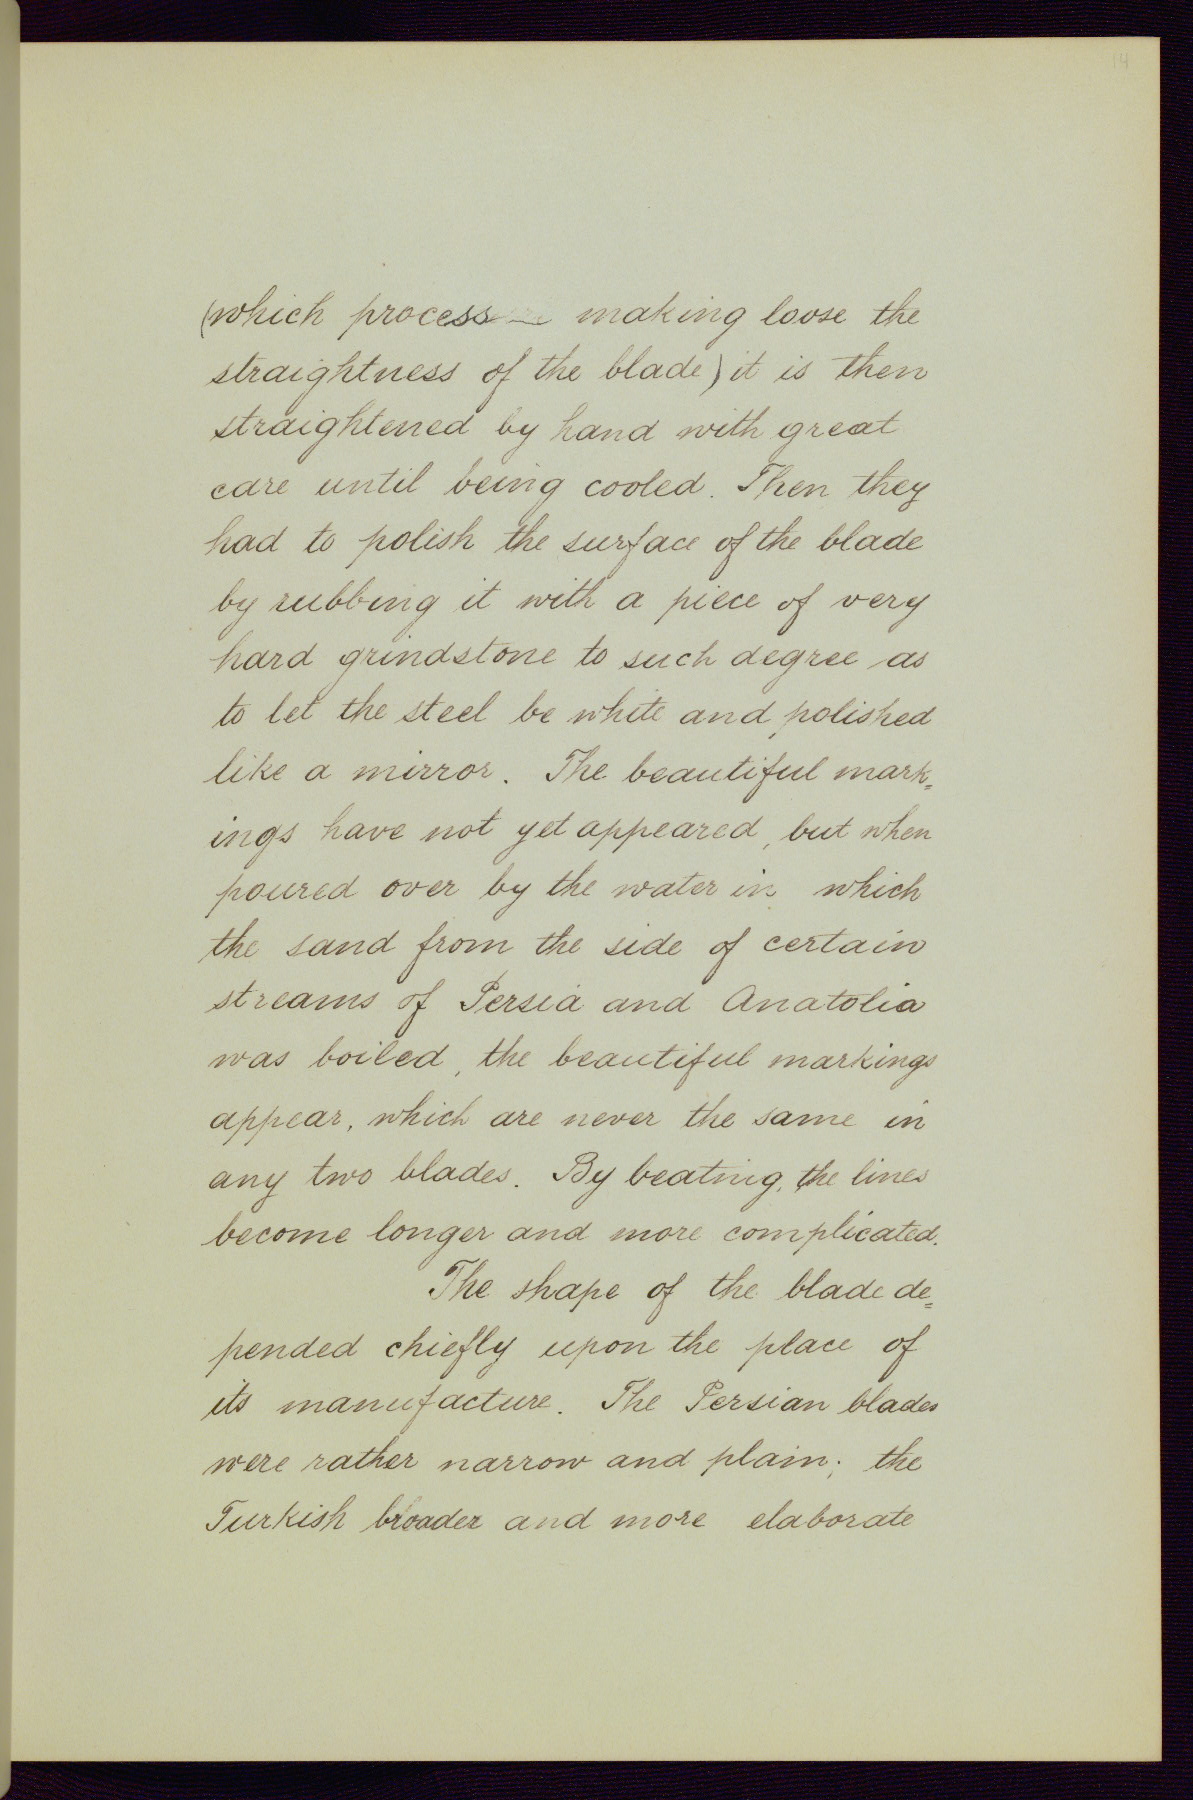 14
(which process — making loose the
straightness of the blade) it is then
straightened by hand with great
care until being cooled. Then they
had to polish the surface of the blade
by rubbing it with a piece of very
hard grindstone to such degree as
to let the steel be white and polished
like a mirror. The beautiful mark=
ings have not yet appeared, but when
poured over by the water in which
the sand from the side of certain
streams of Persia and Anatolia
was boiled, the beautiful markings
appear, which are never the same in
any two blades. By beating, the lines
become longer and more complicated.
The shape of the blade de=
pended chiefly upon the place of
its manufacture. The Persian blades
were rather narrow and plain; the
Turkish broader and more elaborate